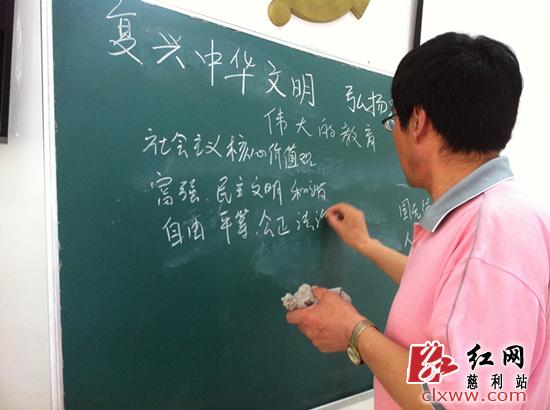 复兴中华文明 弘扬
伟大的教育
社会主义核心价值观
富强、民主文明 和谐
自由 平等、公正 法治
国无
人
红网
慈利站
clxww.com